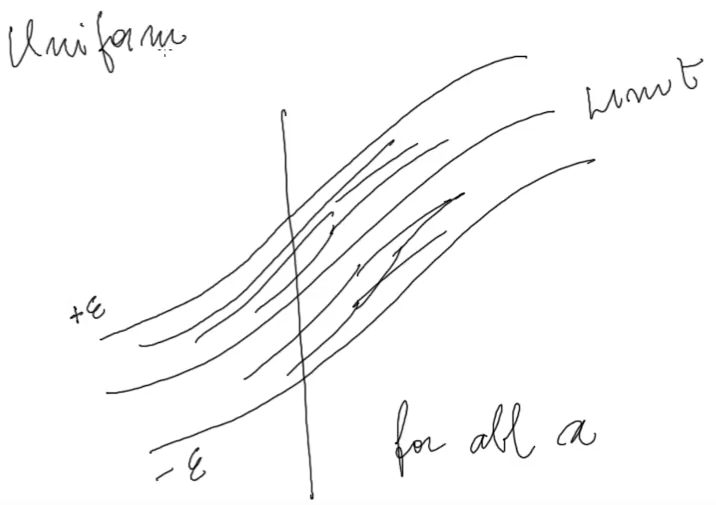 Uniform
Limit
+ε
-ε
for all x